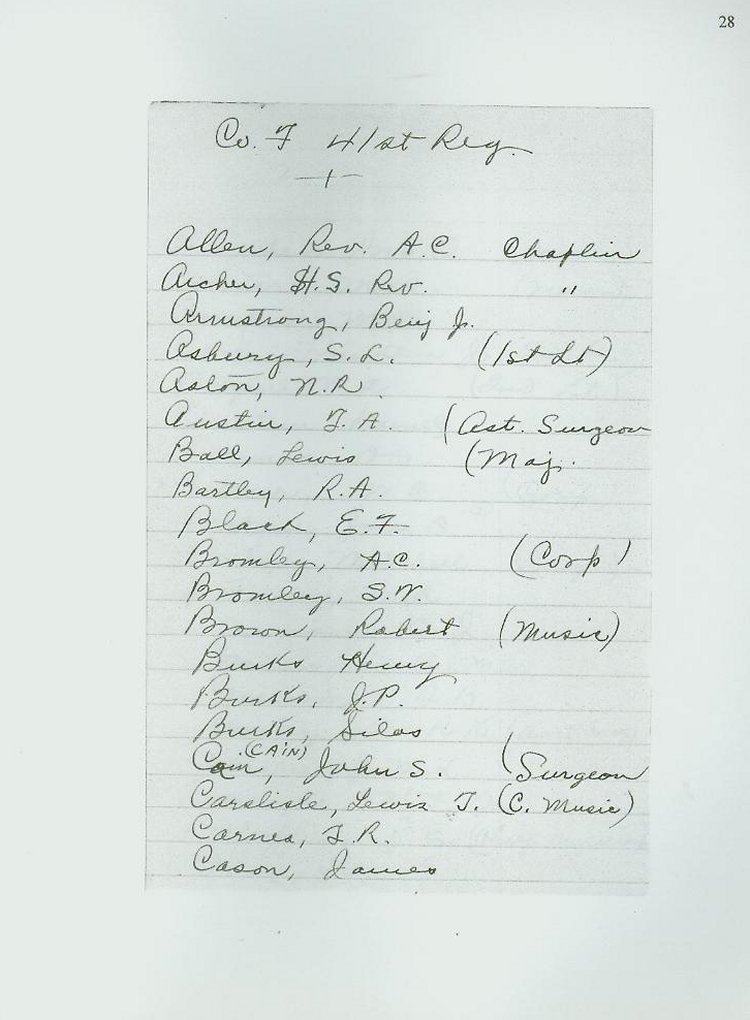 28
Co. F 41st Reg.
Allen, Rev. A.C. Chaplin
Archer, H.S. Rev. "
Armstrong, Benj J.
Asbury, S.L. (1st Lt)
Aston, N.R.
Austin, F.A. (Ast. Surgeon
Ball, Lewis (Maj.
Bartley, R.A.
Black, E.F.
Bromley, A.C. (Corp)
Bromley, S.W.
Brown, Robert (Music)
Burks Henry
Burks, J.P.
Burks, Silas
(CAIN)
Cain, John S. (Surgeon
Carslisle, Lewis T. (C. Music)
Carnes, F.R.
Cason, James